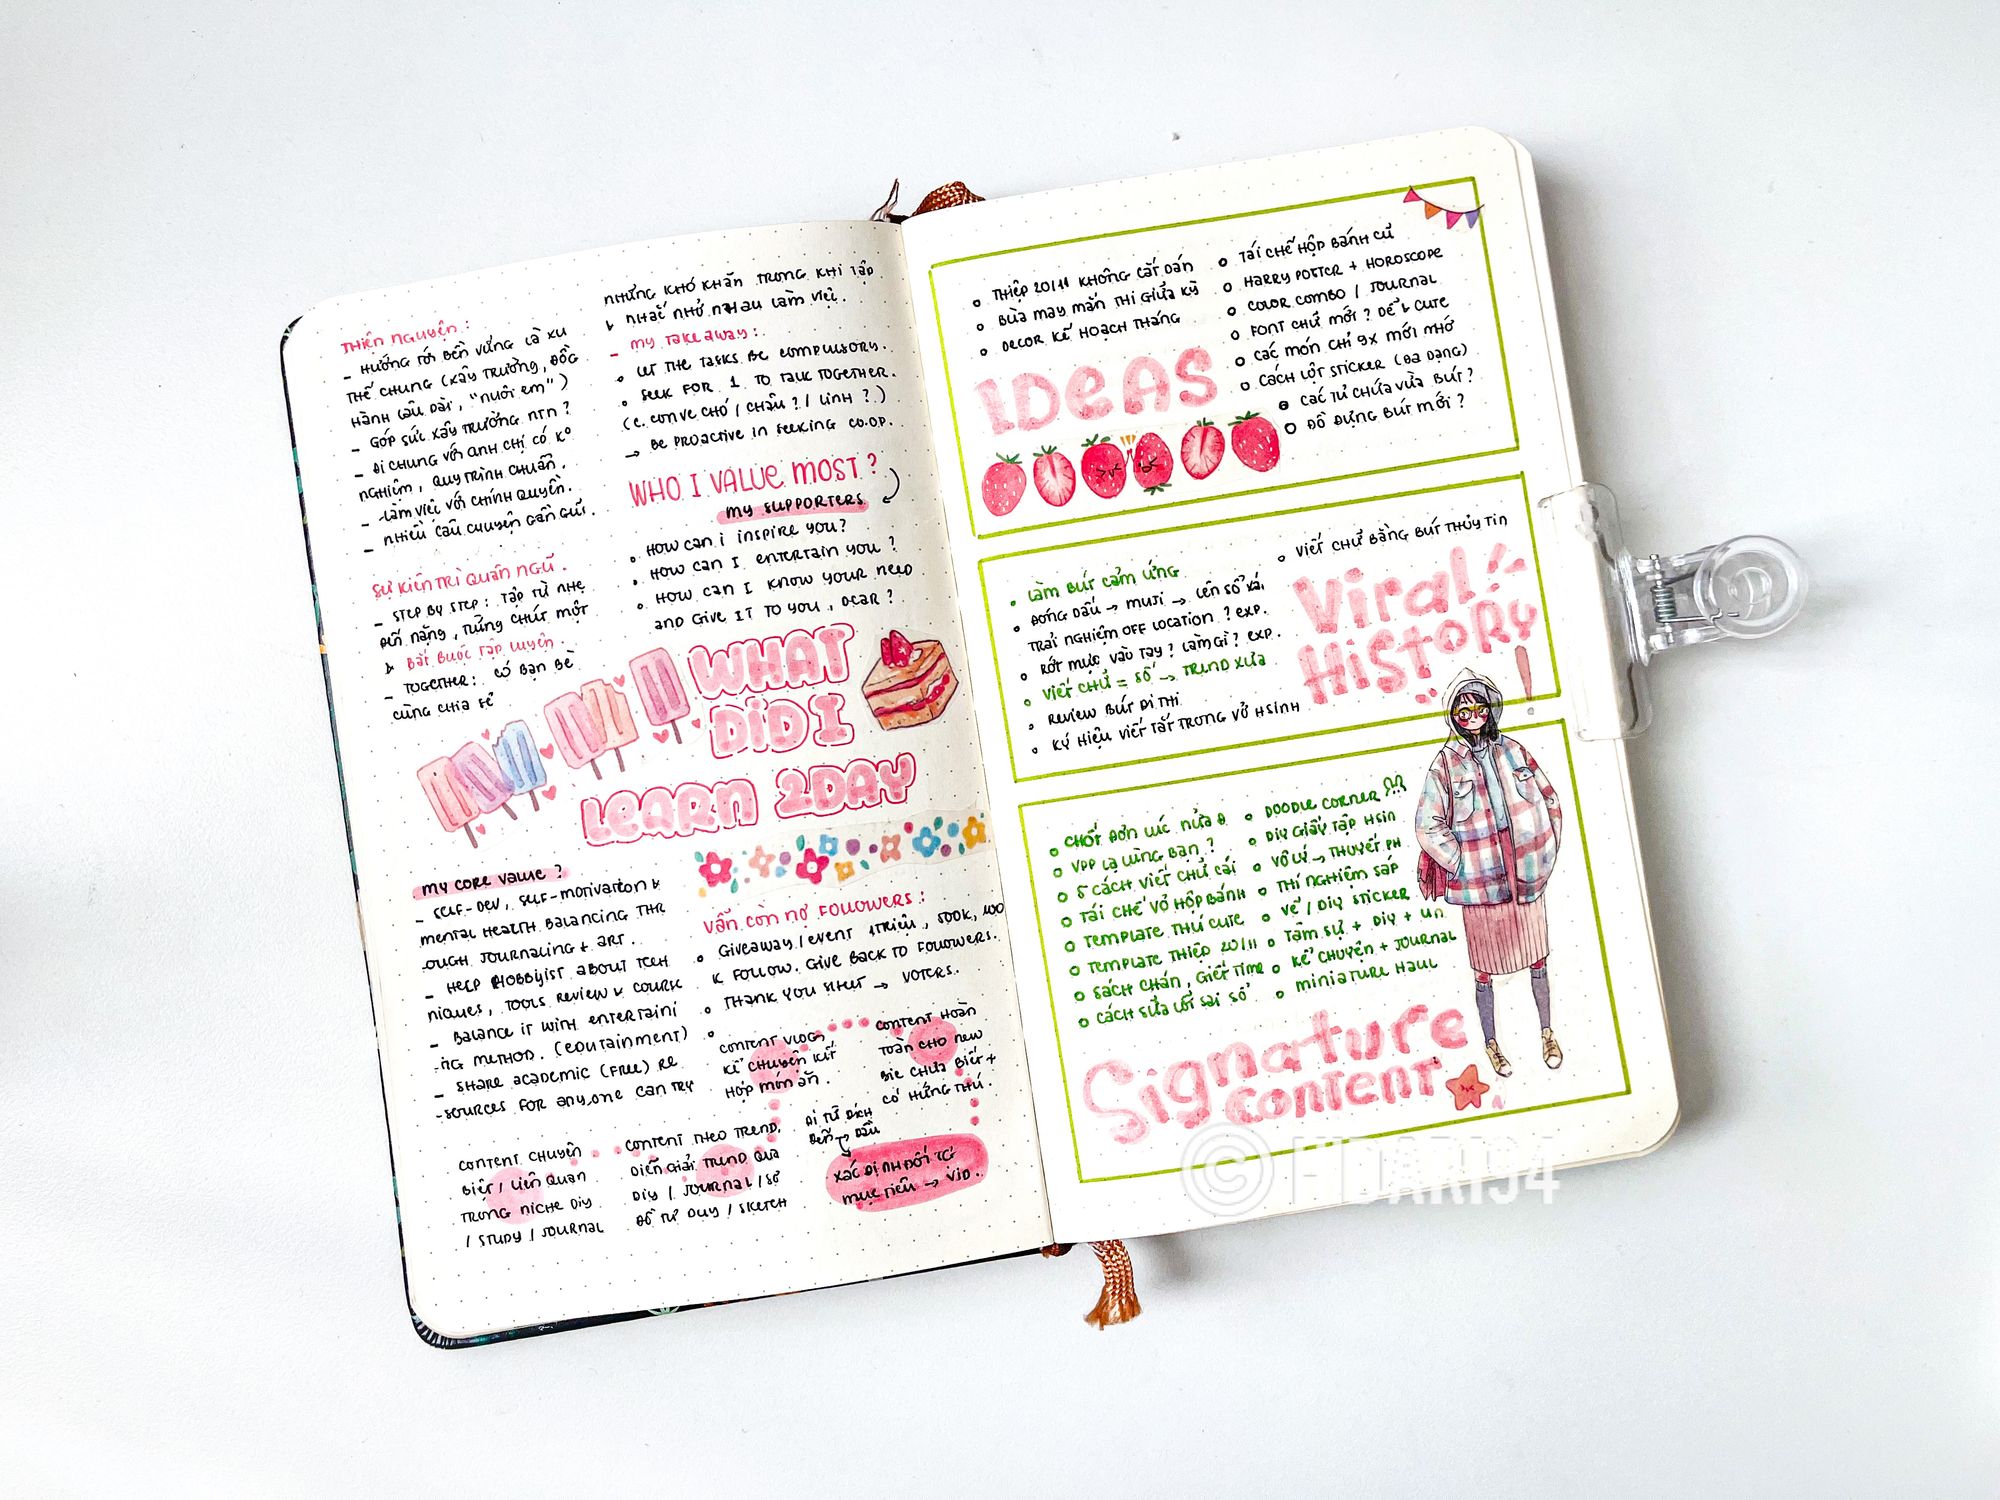 THIỆN NGUYỆN :
- HƯỚNG TỚI BỀN VỮNG LÀ XU
THẾ CHUNG (XÂY TRƯỜNG, ĐỒNG
HÀNH LÂU DÀI, "NUÔI EM")
- GÓP SỨC XÂY TRƯỜNG NTN ?
- ĐI CHUNG VỚI ANH CHỊ CÓ K°
NGHIỆM, QUY TRÌNH CHUẨN.
- LÀM VIỆC VỚI CHÍNH QUYỀN.
- NHIỀU CÂU CHUYỆN GẦN GŨI.
SỰ KIÊN TRÌ QUÂN NGŨ.
- STEP BY STEP : TẬP TỪ NHẸ
ĐẾN NẶNG, TỪNG CHÚT MỘT
BẮT BUỘC TẬP LUYỆN.
- TOGETHER : CÓ BẠN BÈ
CÙNG CHIA SẺ
NHỮNG KHÓ KHĂN TRONG KHI TẬP
NHẮC NHỞ NHAU LÀM VIỆC.
- MY TAKEAWAY :
LET THE TASKS BE COMPULSORY.
SEEK FOR 1 TO TALK TOGETHER.
BE PROACTIVE IN SEEKING CO.OP.
WHO I VALUE MOST ?
MY SUPPORTERS
HOW CAN I INSPIRE YOU?
HOW CAN I ENTERTAIN YOU ?
HOW CAN I KNOW YOUR NEED
AND GIVE IT TO YOU, DEAR ?
WHAT
DID I
LEARN 2DAY
MY CORE VALUE ?
- SELF-DEV, SELF-MOTIVATION &
MENTAL HEALTH BALANCING THR
-OUGH JOURNALING + ART.
- HELP HOBBYIST ABOUT TECH
NIQUES, TOOLS REVIEW & COURSE
- BALANCE IT WITH ENTERTAINI
-NG METHOD. (EDUTAINMENT)
- SHARE ACADEMIC (FREE) RE
-SOURCES FOR ANYONE CAN TRY
VẪN CÒN NỢ FOLLOWERS :
GIVEAWAY / EVENT 1TRIỆU, 500K, 100
K FOLLOW. GIVE BACK TO FOLLOWERS.
THANK YOU SHEET → VOTERS.
CONTENT VLOG,
KỂ CHUYỆN KẾT
HỢP MÓN ĂN.
CONTENT HOÀN
TOÀN CHO NEW
BIE CHƯA BIẾT +
CÓ HỨNG THÚ.
CONTENT CHUYÊN
BIỆT / LIÊN QUAN
TRONG NICHE DIY
/ STUDY / JOURNAL
CONTENT THEO TREND,
DIỄN GIẢI TREND QUA
DIY / JOURNAL / SƠ
ĐỒ TƯ DUY / SKETCH
ĐI TỪ ĐÍCH
ĐẾN → ĐẦU
XÁC ĐỊNH ĐỐI TG
MỤC TIÊU → VID.
THIỆP 20/11 KHÔNG CẮT DÁN
BÙA MAY MẮN THI GIỮA KỲ
DECOR KẾ HOẠCH THÁNG
TÁI CHẾ HỘP BÁNH CŨ
HARRY POTTER + HOROSCOPE
COLOR COMBO / JOURNAL
FONT CHỮ MỚI ? DỄ & CUTE
CÁC MÓN CHỈ 9X MỚI NHỚ
CÁCH LỘT STICKER (ĐA DẠNG)
CÁC TỦ CHỨA VỪA BÚT ?
ĐỒ ĐỰNG BÚT MỚI ?
IDEAS
VIẾT CHỮ BẰNG BÚT THỦY TINH
LÀM BÚT CẢM ỨNG
ĐÓNG DẤU → MUJI → LÊN SỔ XÁI
TRẢI NGHIỆM OFF LOCATION ? EXP.
RỚT MỰC VÀO TAY ? LÀM GÌ ? EXP.
VIẾT CHỮ = SỐ → TREND XƯA
REVIEW BÚT ĐI THI
KÝ HIỆU VIẾT TẮT TRONG VỞ HSINH
Viral
HISTORY!
CHỐT ĐƠN LÚC NỬA Đ
VPP LẠ LÙNG BẠN ?
5 CÁCH VIẾT CHỮ CÁI
TÁI CHẾ VỎ HỘP BÁNH
TEMPLATE THÚ CUTE
TEMPLATE THIỆP 20/11
SÁCH CHÁN, GIẾT TIME
CÁCH SỬA LỖI SAI SỔ
DOODLE CORNER
DIY GIẤY TẬP HSIN
VÔ LÝ → THUYẾT PH
THÍ NGHIỆM SÁP
VẼ / DIY STICKER
TÂM SỰ + DIY +
KỂ CHUYỆN + JOURNAL
MINIATURE HAUL
Signature
CONTENT
© FIDARI94